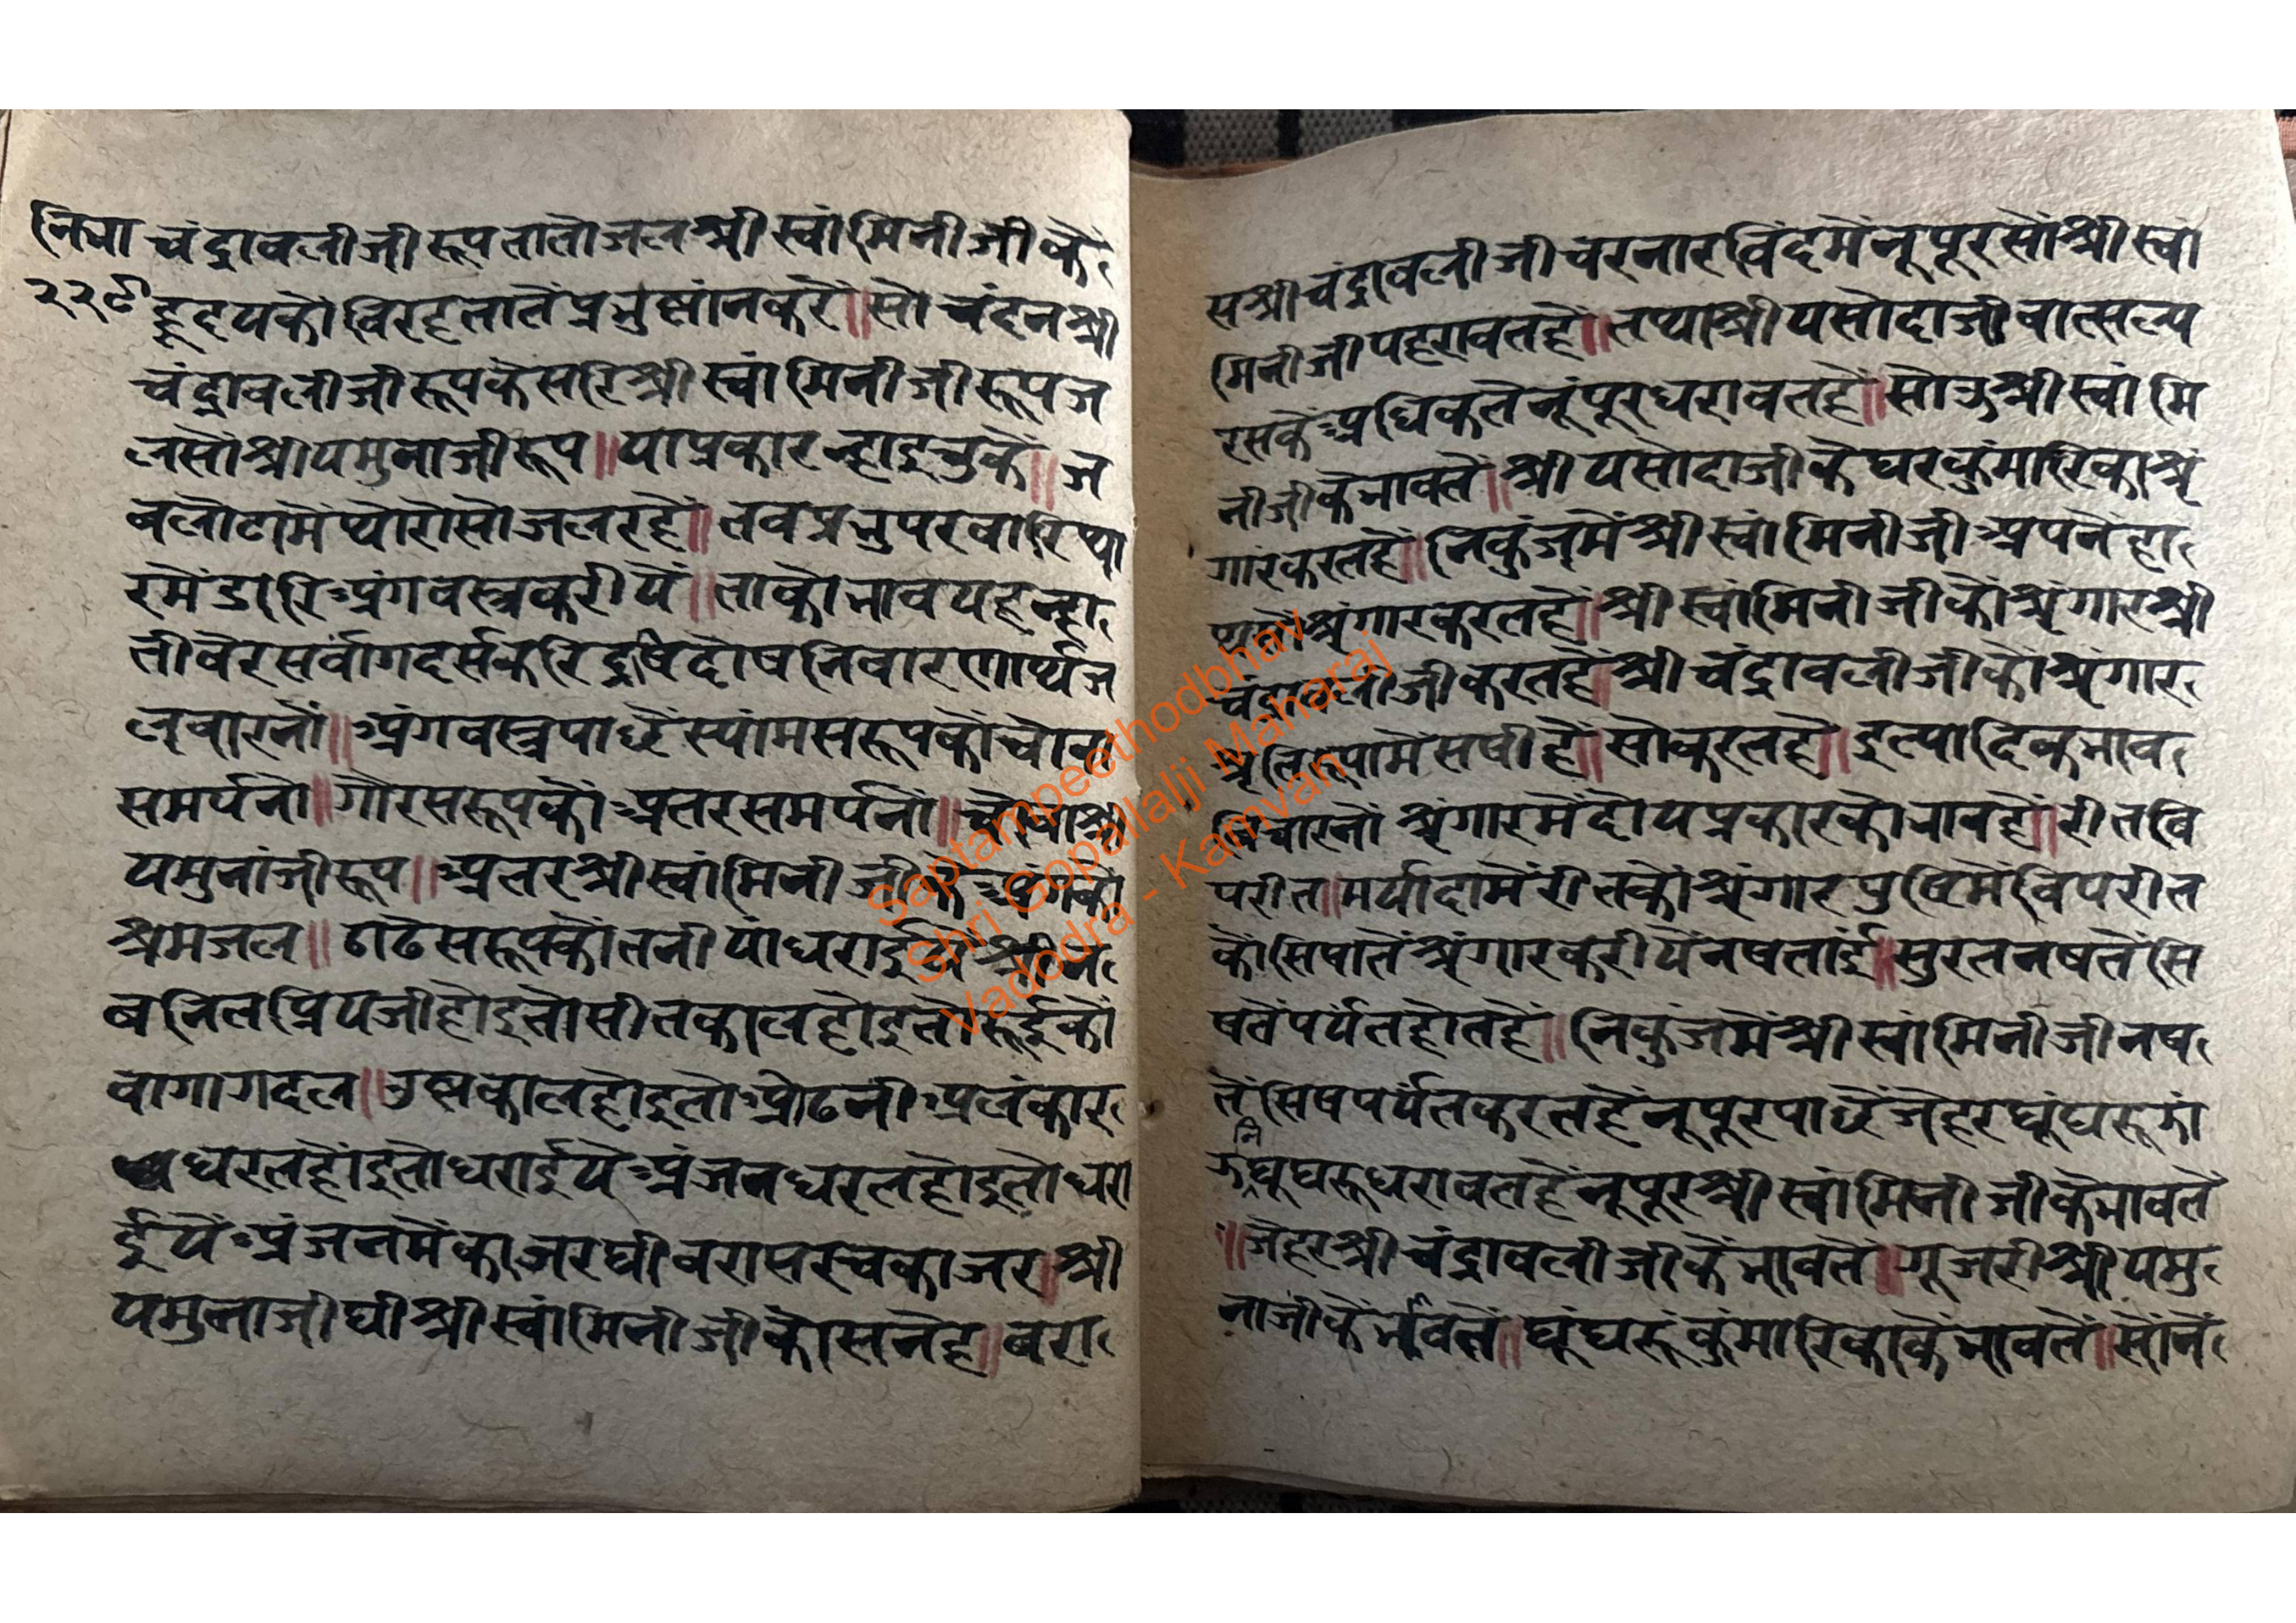 नित्रा
२२९
चंद्रावलीजी रूप तातो जल श्री स्वांमिनीजी के
हृदयको विरह तातें प्रभु स्नांन करें॥ सो चंदन श्री
चंद्रावलीजी रूप केसरि श्री स्वांमिनीजी रूप ज
लसों श्रीयमुनाजी रूप॥ या प्रकार न्हाइ चुकें॥ ज
व लोटामें थोरोसो जल रहें॥ तव प्रभु पर वारि
रमें डारि अंगवस्त्र करीयें॥ ताको भाव यह न्हा
ती वेर सर्वांग दर्स करि दोष निवारणार्थ ज
ल वारनों॥ अंगवस्त्र पाछें स्यांम सरूपकों चोवा
समर्पनो॥ गौर सरूपकों अतर समर्पनों॥ चोवा श्री
यमुनांजी रूप॥ अतर श्री स्वांमिनीजी के अंगको
श्रमजल॥ ठाढे सरूपकों तनीयां धराईये श्री न
वनितप्रियजी होइ तो सीतकाल होइ तो रूईको
वागा गदल॥ उष्णकाल होइ तो ओढनी अलंकार
धरत होंइ तो धराईयें अंजन धरत होइ तो धरा
ईयें अंजनमें काजर घी वरास स्वेकाजर॥ श्री
यमुनाजी घी श्री स्वांमिनीजी को सनेह॥ वरा
स श्रीचंद्रावलीजी चरनारविंदमें नूपूर सों श्री स्वां
मिनीजी पहरावत हें॥ तथा श्री यसोदाजी वात्सल्य
रसके अधिकतें नूंपूर धरावत हें॥ सोऊ श्री स्वांमि
नीजीके भावतें॥ श्री यसोदाजी के घर कुंमारिका श्रृं
गार करत हें॥ निकुंजमें श्री स्वांमिनीजी अपनें हा
थसों श्रृंगार करत हें॥ श्री स्वांमिनीजीकों श्रृंगार श्री
चंद्रावलीजी करत हें॥ श्री चंद्रावलीजीकों श्रृंगार
सषी हें॥ सो करत हें॥ इत्यादिक भाव
विचारनों श्रृंगारमें दोय प्रकारको भाव हें॥ रीत वि
परीत॥ मर्यादामें रीतको श्रृंगार पुष्टिमें विपरीत
कों सिषातें श्रृंगार करीयें नषतांई॥ सुरत नषतें सि
षतें पर्यंत होत हें॥ निकुंजमें श्री स्वांमिनीजी नष
तें सिष पर्यंत करत हें नूपूर पाछें जेहर घूंघरू
घूघरू धरावत हें नूपूर श्री स्वांमिनीजी के भावतें
॥ जेहर श्री चंद्रावलीजी कें भावतें॥ गूजरी श्री यमु
नाजी कें भावतें॥ घूंघरूं कुंमारिका कें भावतें॥ सोनें
Saptampeethodbhav
Shri Gopallalji Maharaj
Vadodra - Kamvan